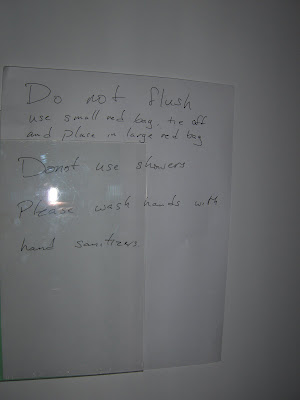 Do not flush
use small red bag, tie off
and place in large red bag
Donot use showers
Please wash hands with
hand sanitizers